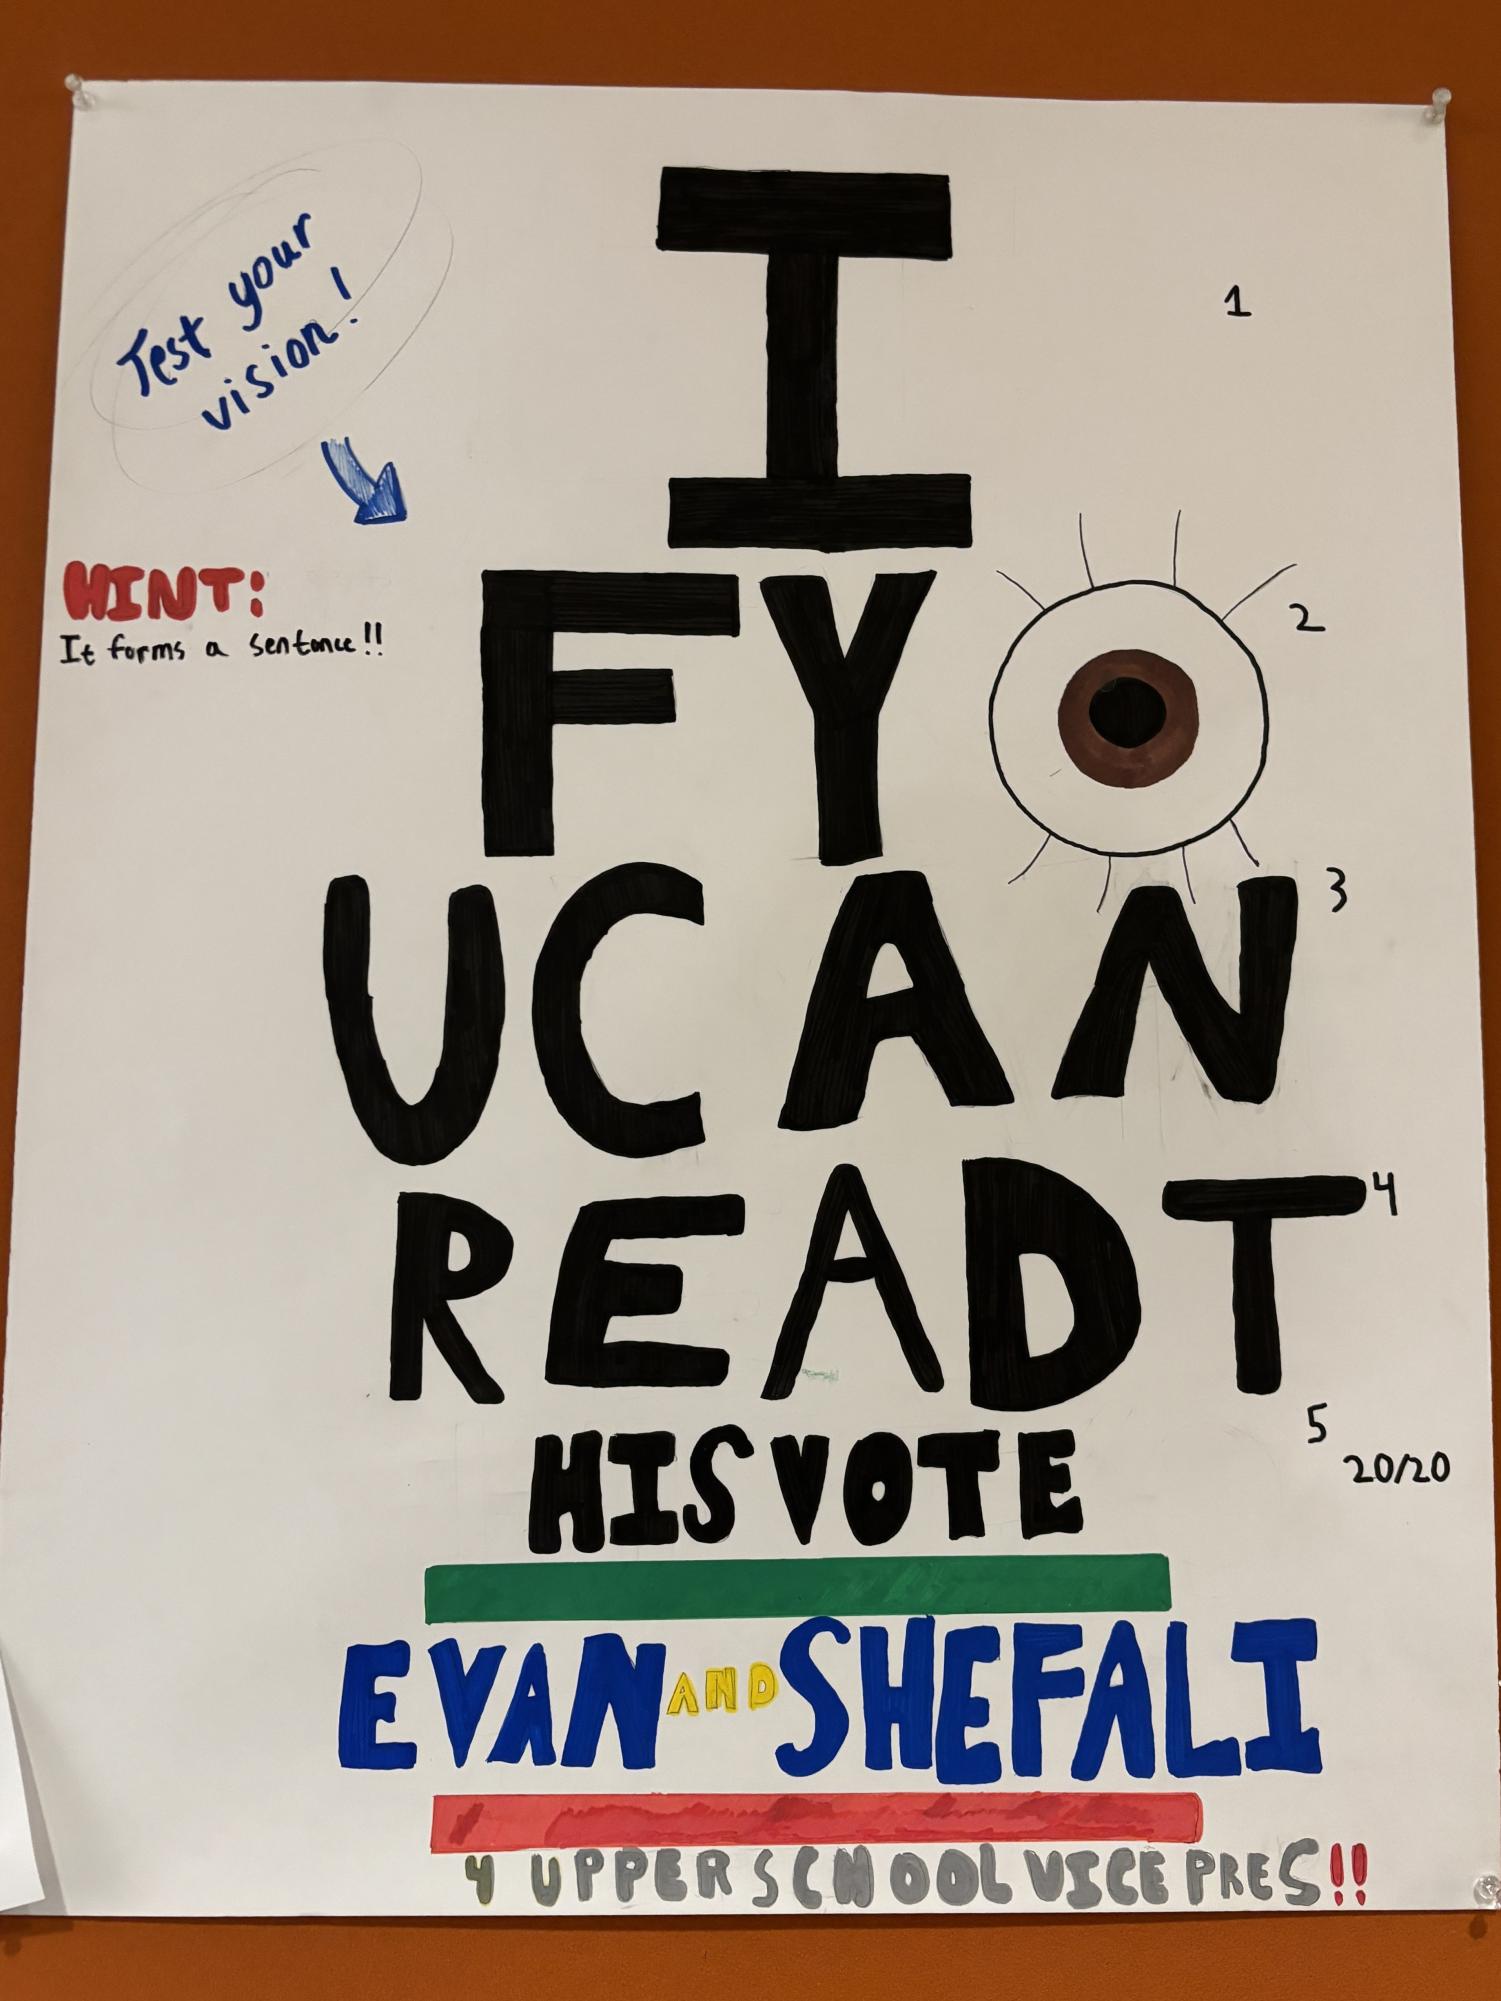 Test your
vision!
I
1
HINT:
It forms a sentence!!
FY
2
UCAN
3
READT
4
HISVOTE
5
20/20
EVAN AND SHEFALI
4 UPPER SCHOOL VICE PRES!!